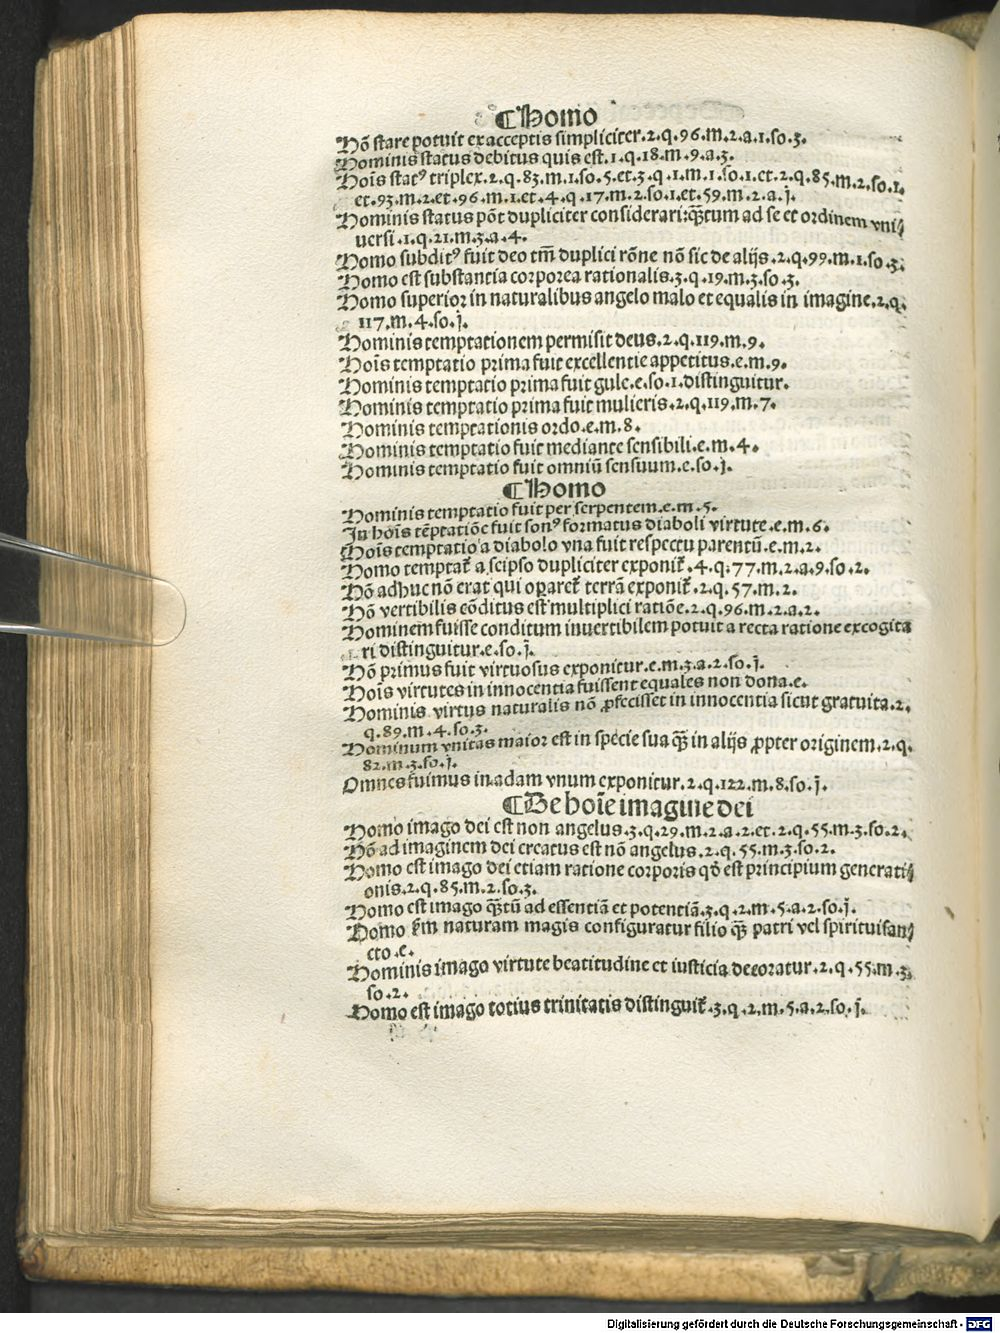 ¶Homo
Hō stare potuit ex acceptis simpliciter.2.q.96.m.2.a.1.so.3.
Hominis status debitus quis est.1.q.18.m.9.a.3.
Hoīs statꝰ triplex.2.q.83.m.1.so.5.et.3.q.1.m.1.so.1.et.2.q.85.m.2.so.1.
et.93.m.2.et.96.m.1.et.4.q.17.m.2.so.1.et.59.m.2.a.j̄.
Hominis status pōt dupliciter considerari:qꝫtum ad se et ordinem vni
uersi.1.q.21.m.3.a.4.
Homo subditꝰ fuit deo tm̄ duplici rōne nō sic de alijs.2.q.99.m.1.so.3.
Homo est substantia corporea rationalis.3.q.19.m.3.so.3.
Homo superior in naturalibus angelo malo et equalis in imagine.2.q.
117.m.4.so.j̄.
Hominis temptationem permisit deus.2.q.119.m.9.
Hoīs temptatio prima fuit excellentie appetitus.e.m.9.
Hominis temptatio prima fuit gule.e.so.1.distinguitur.
Hominis temptatio prima fuit mulieris.2.q.119.m.7.
Hominis temptationis ordo.e.m.8.
Hominis temptatio fuit mediante sensibili.e.m.4.
Hominis temptatio fuit omniū sensuum.e.so.j̄.
¶Homo
Hominis temptatio fuit per serpentem.e.m.5.
In hoīs tēptatiōe fuit sonꝰ formatus diaboli virtute.e.m.6.
Hoīs temptatio a diabolo vna fuit respectu parentū.e.m.2.
Homo temptat᷑ a seipso dupliciter exponit᷑.4.q.77.m.2.a.9.so.2.
Hō adhuc nō erat qui oꝑaret᷑ terrā exponit᷑.2.q.57.m.2.
Hō vertibilis cōditus est multiplici ratiōe.2.q.96.m.2.a.2.
Hominem fuisse conditum inuertibilem potuit a recta ratione excogita
ri distinguitur.e.so.j̄.
Hō primus fuit virtuosus exponitur.e.m.3.a.2.so.j̄.
Hoīs virtutes in innocentia fuissent equales non dona.e.
Hominis virtus naturalis nō ꝓfecisset in innocentia sicut gratuita.2.
q.89.m.4.so.3.
Hominum vnitas maior est in specie sua qꝫ in alijs ꝓpter originem.2.q.
82.m.3.so.j̄.
Omnes fuimus in adam vnum exponitur.2.q.122.m.8.so.j̄.
¶De hoīe imagine dei
Homo imago dei est non angelus.3.q.29.m.2.a.2.et.2.q.55.m.3.so.2.
Hō ad imaginem dei creatus est nō angelus.2.q.55.m.3.so.2.
Homo est imago dei etiam ratione corporis qd̄ est principium generati
onis.2.q.85.m.2.so.3.
Homo est imago qꝫtū ad essentiā et potentiā.3.q.2.m.5.a.2.so.j̄.
Homo fm̄ naturam magis configuratur filio qꝫ patri vel spirituisan
cto.e.
Hominis imago virtute beatitudine et iusticia decoratur.2.q.55.m.3.
so.2.
Homo est imago totius trinitatis distinguit᷑.3.q.2.m.5.a.2.so.j̄.
Digitalisierung gefördert durch die Deutsche Forschungsgemeinschaft - DFG